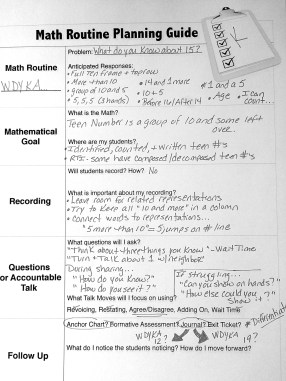 Math Routine Planning Guide
K
Problem: What do you know about 15?
Math Routine
WDYKA
Anticipated Responses:
• Full Ten frame + top row
• More than 10
• group of 10 and 5
• 5, 5, 5 (3 hands)
• 14 and 1 more
• 10 + 5
• Before 16/After 14
# 1 and a 5
• Age
• I can count...
Mathematical Goal
What is the Math?
Teen Number is a group of 10 and some left over.
Where are my students?
• Identified, counted, + written teen #'s
• RTI: some have composed/decomposed teen #'s
Will students record? How? No
Recording
What is important about my recording?
• Leave room for related representations
• Try to keep all "10 and more" in a column
• Connect words to representations...
"5 more than 10" = 5 jumps on # line
Questions or Accountable Talk
What questions will I ask?
"Think about three things you know" - Wait Time
"Turn + Talk about 1 w/ neighbor"
During sharing...
"How do you know?"
"How do you see it?"
If struggling...
"Can you show on hands?"
"How else could you show it?"
What Talk Moves will I focus on using?
Revoicing, Restating, Agree/Disagree, Adding On, Wait Time
Follow Up
Anchor Chart? Formative Assessment? Journal? Exit Ticket?
WDYKA 12?
WDYKA 19?
What do I notice the students noticing? How do I move forward?